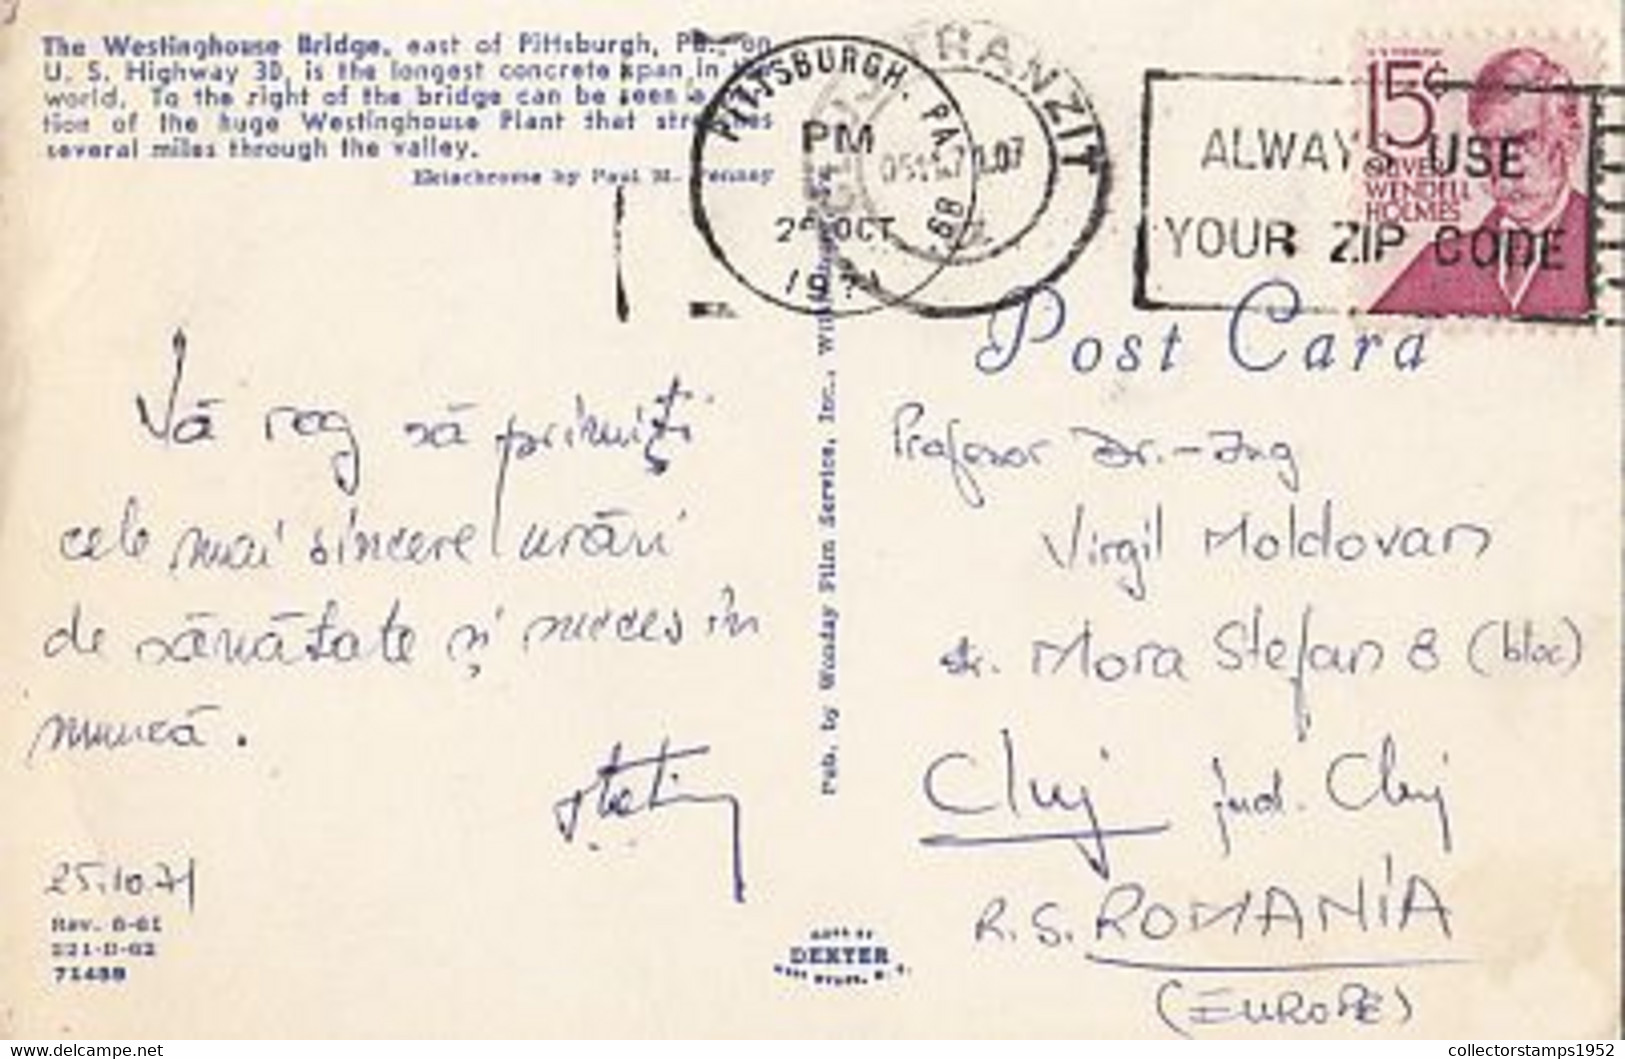 The Westinghouse Bridge, east of Pittsburgh, Pa., on
U. S. Highway 30, is the longest concrete span in the
world. To the right of the bridge can be seen a
tion of the huge Westinghouse Plant that stretches
several miles through the valley.
Ektachrome by Paul M.
PITTSBURGH, PA.
PM
OCT
TRANZIT
ALWAYS USE
YOUR ZIP CODE
15¢
OLIVER
WENDELL
HOLMES
Post Card
Vă rog să primiți
cele mai sincere urări
de sănătate și succes în
muncă.
25.10.71
Rev. 6-61
221-D-62
71458
Pub. by Wonday Film Service, Inc.,
DEXTER
Profesor Dr.-Ing
Virgil Moldovan
str. Mora Stefan 8 (bloc)
Cluj jud. Cluj
R.S. ROMANIA
(EUROPE)
collectorstamps1952